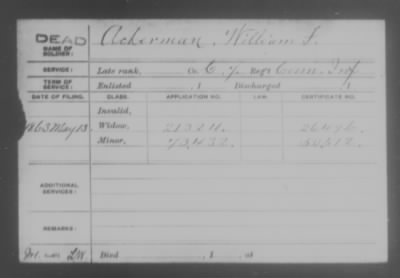 DEAD
NAME OF SOLDIER: Ackerman, William F.
SERVICE: Late rank, Co. C, 7 Reg't Conn. Inf.
TERM OF SERVICE: Enlisted , 1 Discharged , 1
DATE OF FILING. CLASS. APPLICATION NO. LAW. CERTIFICATE NO.
Invalid,
1863 May 13. Widow,
Minor,
ADDITIONAL SERVICES:
REMARKS:
Died , 1 , at